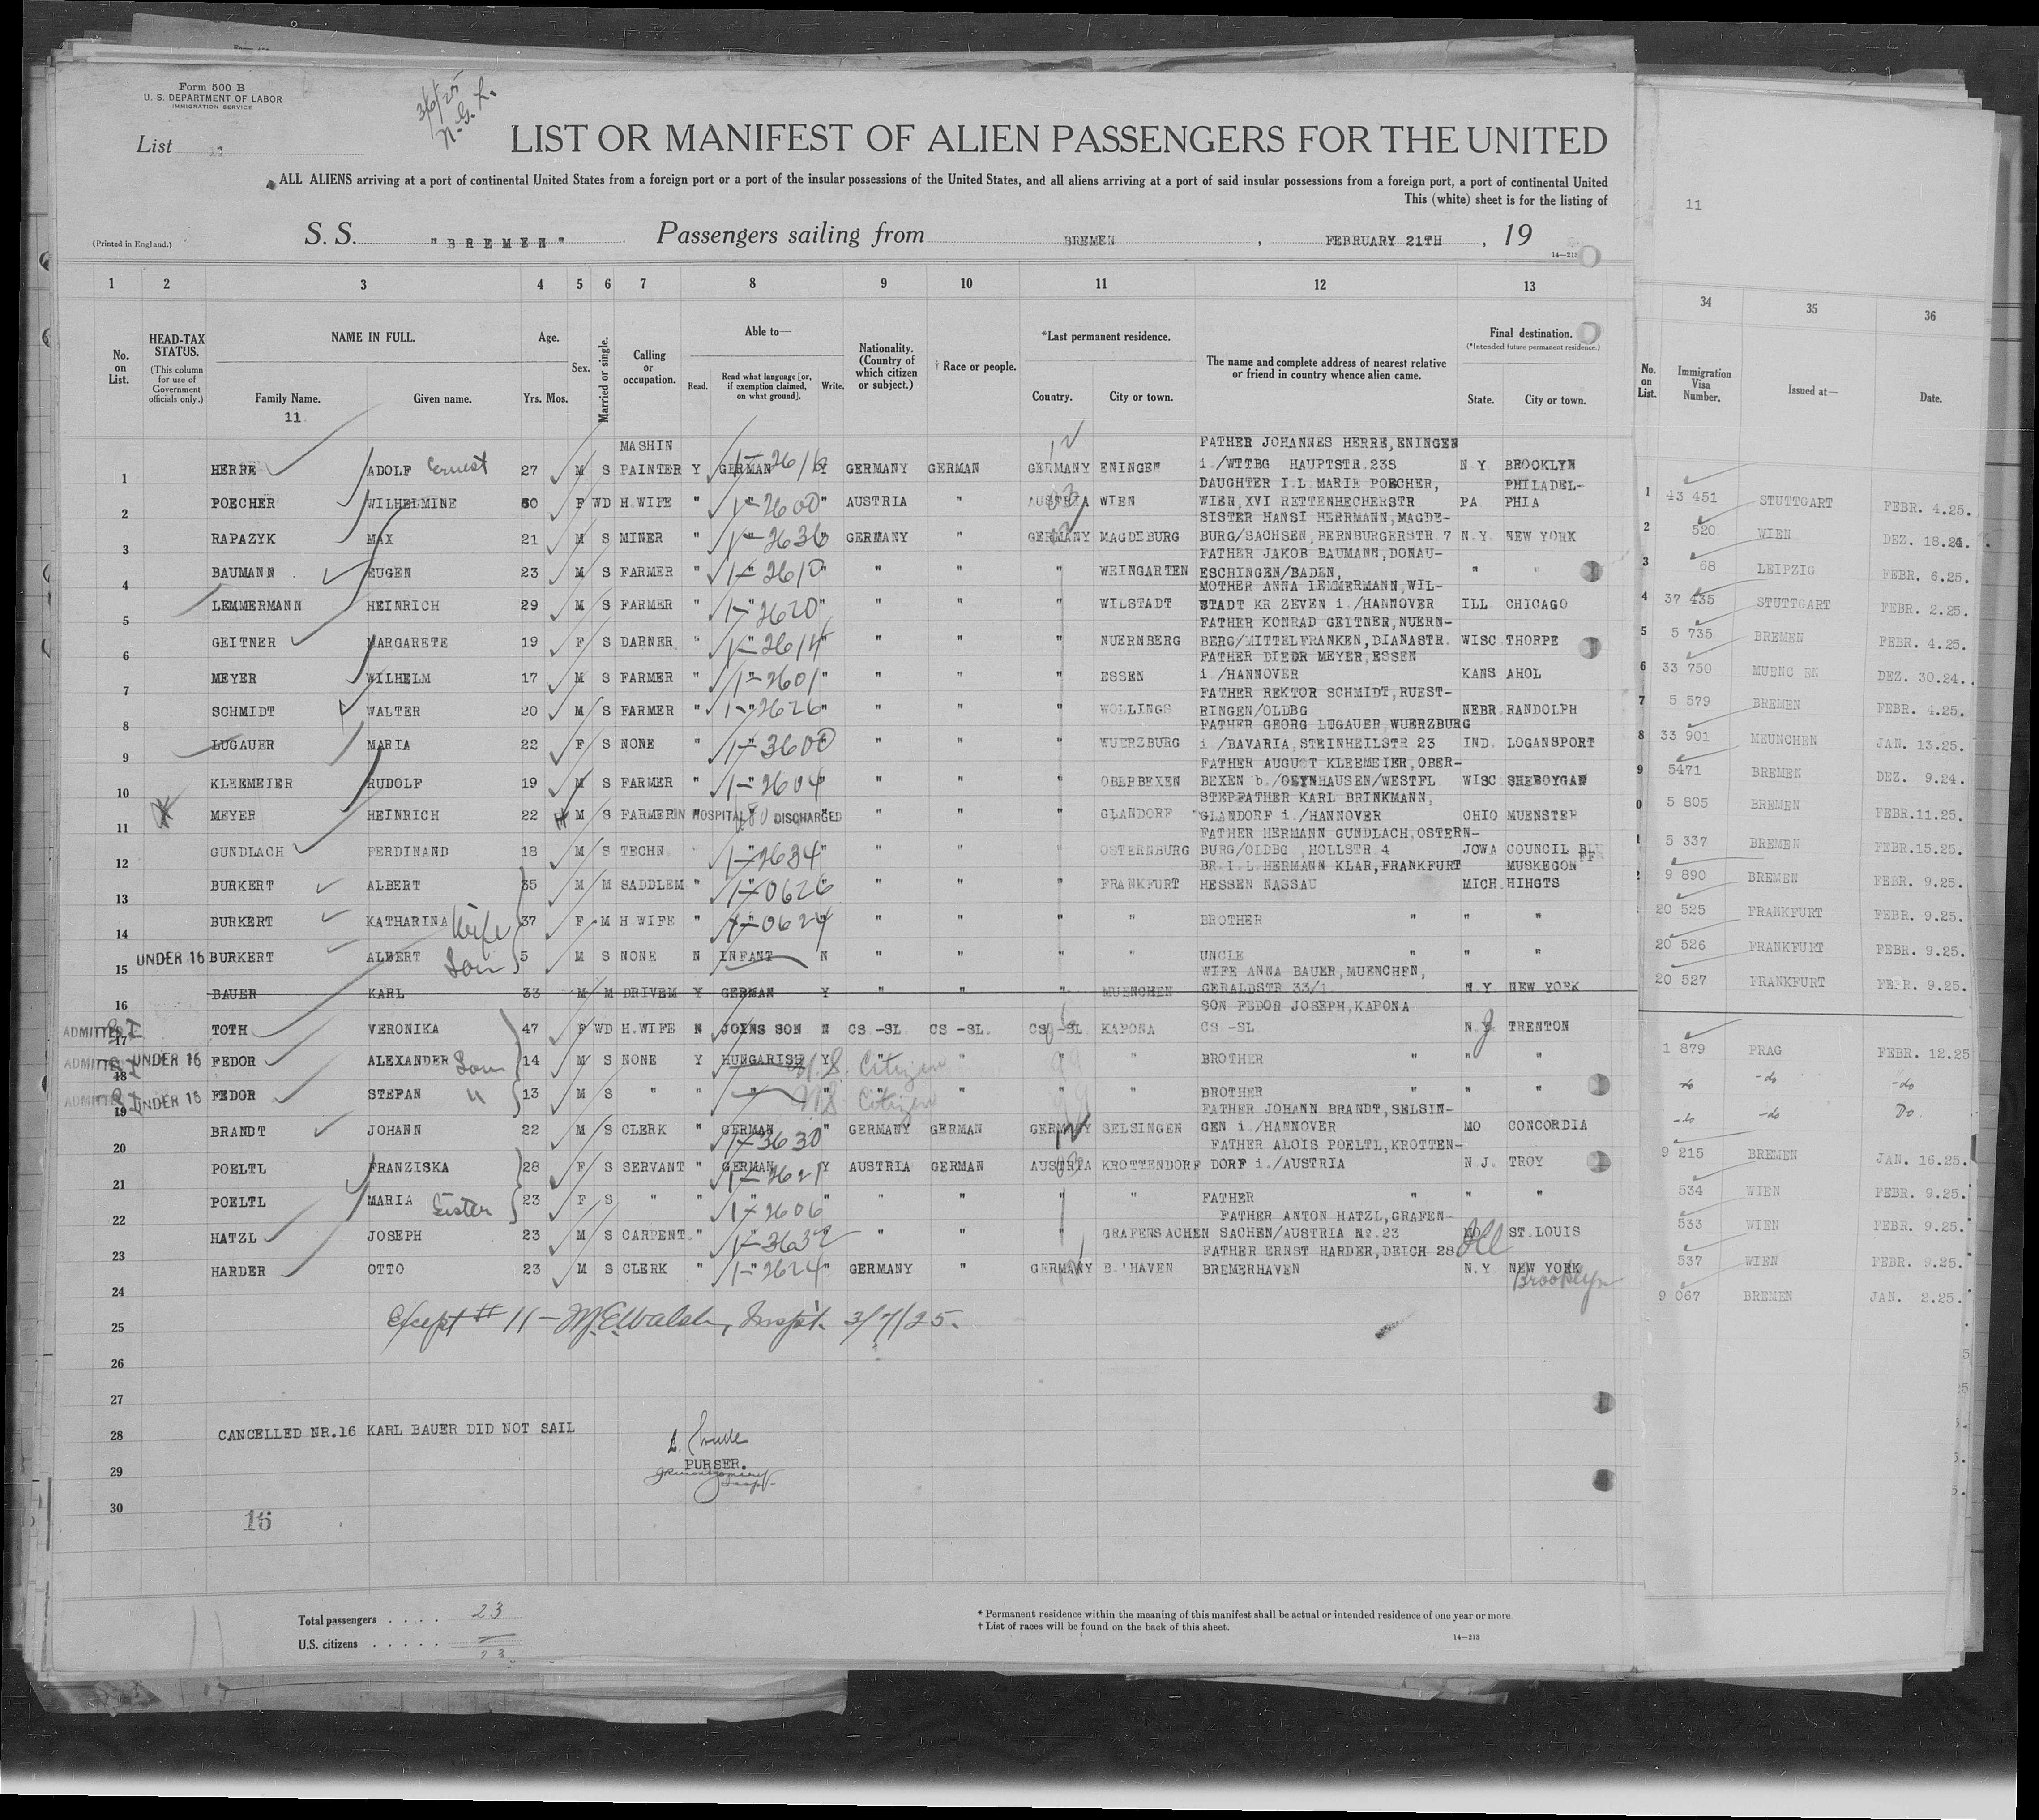 Form 500 B
U. S. DEPARTMENT OF LABOR
IMMIGRATION SERVICE
3/6/25
N.G.L.
List
LIST OR MANIFEST OF ALIEN PASSENGERS FOR THE UNITED
ALL ALIENS arriving at a port of continental United States from a foreign port or a port of the insular possessions of the United States, and all aliens arriving at a port of said insular possessions from a foreign port, a port of continental United
This (white) sheet is for the listing of
(Printed in England.) S. S. "BREMEN" Passengers sailing from BREMEN, FEBRUARY 21TH, 19
14—213
11
1 2 3 4 5 6 7 8 9 10 11 12 13 34 35 36
No. on List.
HEAD-TAX STATUS. (This column for use of Government officials only.)
NAME IN FULL.
Family Name. Given name.
11
Age. Yrs. Mos.
Sex.
Married or single.
Calling or occupation.
Able to—
Read. Read what language [or, if exemption claimed, on what ground]. Write.
Nationality. (Country of which citizen or subject.)
† Race or people.
*Last permanent residence.
Country. City or town.
The name and complete address of nearest relative or friend in country whence alien came.
Final destination.
(*Intended future permanent residence.)
State. City or town.
No. on List.
Immigration Visa Number.
Issued at—
Date.
MASHIN FATHER JOHANNES HERRE, ENINGEN
1 HERRE ADOLF Ernest 27 M S PAINTER Y GERMAN Y GERMANY GERMAN GERMANY ENINGEN i./WTTBG HAUPTSTR.23S N Y BROOKLYN
DAUGHTER I.L MARIE POECHER, PHILADEL-
2 POECHER WILHELMINE 50 F WD H.WIFE " 1-2600 " AUSTRIA " AUSTRIA WIEN WIEN, XVI RETTENHECHERSTR PA PHIA
SISTER HANSI HERRMANN, MAGDE-
3 RAPAZYK MAX 21 M S MINER " 1-2636 GERMANY " GERMANY MAGDEBURG BURG/SACHSEN, BERNBURGERSTR.7 N.Y. NEW YORK
FATHER JAKOB BAUMANN, DONAU-
4 BAUMANN EUGEN 23 M S FARMER " 1-2610 " " " " WEINGARTEN ESCHINGEN/BADEN, " "
MOTHER ANNA LEMMERMANN, WIL-
5 LEMMERMANN HEINRICH 29 M S FARMER " 1-2620 " " " " WILSTADT STADT KR ZEVEN i./HANNOVER ILL CHICAGO
FATHER KONRAD GEITNER, NUERN-
6 GEITNER MARGARETE 19 F S DARNER " 1-2614 " " " " NUERNBERG BERG/MITTELFRANKEN, DIANASTR. WISC THORPE
FATHER DIEDR MEYER, ESSEN
7 MEYER WILHELM 17 M S FARMER " 1-2601 " " " " ESSEN i./HANNOVER KANS AHOL
FATHER REKTOR SCHMIDT, RUEST-
8 SCHMIDT WALTER 20 M S FARMER " 1-2626 " " " " WOLLINGS RINGEN/OLDBG NEBR. RANDOLPH
FATHER GEORG LUGAUER, WUERZBURG
9 LUGAUER MARIA 22 F S NONE " 1-3600 " " " WUERZBURG i./BAVARIA, STEINHEILSTR 23 IND. LOGANSPORT
FATHER AUGUST KLEEMEIER, OBER-
10 KLEEMEIER RUDOLF 19 M S FARMER " 1-2604 " " " OBERBEXEN BEXEN b./OEYNHAUSEN/WESTFL WISC SHEBOYGAN
STEPFATHER KARL BRINKMANN,
11 MEYER HEINRICH 22 M S FARMER IN HOSPITAL DISCHARGED " " " GLANDORF GLANDORF i./HANNOVER OHIO MUENSTER
FATHER HERMANN GUNDLACH, OSTERN-
12 GUNDLACH FERDINAND 18 M S TECHN. 1-2634 " " " " OSTERNBURG BURG/OLDBG ,HOLLSTR.4 JOWA COUNCIL BLUFF
BR.I.L.HERMANN KLAR, FRANKFURT MUSKEGON
13 BURKERT ALBERT 35 M M SADDLEM " 1-0626 " " " FRANKFURT HESSEN NASSAU MICH. HIHGTS
14 BURKERT KATHARINA Wife 37 F M H WIFE " 1-0624 " " " " BROTHER " " "
15 UNDER 16 BURKERT ALBERT Son 5 M S NONE N INFANT N " " " " UNCLE " "
WIFE ANNA BAUER, MUENCHEN,
16 BAUER KARL 33 M M DRIVEM Y GERMAN Y " " " MUENCHEN GERALDSTR 33/1 N.Y NEW YORK
SON FEDOR JOSEPH, KAPONA
17 ADMITTED TOTH VERONIKA 47 F WD H.WIFE N JOINS SON N CS.-SL. CS -SL. CS -SL KAPONA CS -SL N.J TRENTON
18 ADMITTED UNDER 16 FEDOR ALEXANDER Son 14 M S NONE Y HUNGARISH Y U.S. Citizen " " BROTHER " " "
19 ADMITTED UNDER 16 FEDOR STEFAN " 13 M S " " " " U.S. Citizen " BROTHER " " "
FATHER JOHANN BRANDT, SELSIN-
20 BRANDT JOHANN 22 M S CLERK " GERMAN 1-3630 " GERMANY GERMAN GERMANY SELSINGEN GEN i./HANNOVER MO CONCORDIA
FATHER ALOIS POELTL, KROTTEN-
21 POELTL FRANZISKA 28 F S SERVANT " GERMAN 1-2621 Y AUSTRIA GERMAN AUSTRIA KROTTENDORF DORF i./AUSTRIA N J. TROY
22 POELTL MARIA Sister 23 F S " " 1-2606 " " " FATHER " " "
FATHER ANTON HATZL, GRAFEN-
23 HATZL JOSEPH 23 M S CARPENT. " 1-3632 " " " GRAFENSACHEN SACHEN/AUSTRIA Nr.23 MO Ill ST.LOUIS
FATHER ERNST HARDER, DEICH 28
24 HARDER OTTO 23 M S CLERK " 1-2624 GERMANY " GERMANY B.'HAVEN BREMERHAVEN N.Y NEW YORK
Brooklyn
25 Except # 11 - M.E.Walsh, Inspt. 3/7/25.
26
27
28 CANCELLED NR.16 KARL BAUER DID NOT SAIL
29 PURSER.
30
16
Total passengers . . . . 23
U.S. citizens . . . . .
23
* Permanent residence within the meaning of this manifest shall be actual or intended residence of one year or more
† List of races will be found on the back of this sheet.
14—213
1 43 451 STUTTGART FEBR. 4.25.
2 520 WIEN DEZ. 18.24.
3 68 LEIPZIG FEBR. 6.25.
4 37 435 STUTTGART FEBR. 2.25.
5 5 735 BREMEN FEBR. 4.25.
6 33 750 MUENC EN DEZ. 30.24.
7 5 579 BREMEN FEBR. 4.25.
8 33 901 MEUNCHEN JAN. 13.25.
9 5471 BREMEN DEZ. 9.24.
0 5 805 BREMEN FEBR.11.25.
1 5 337 BREMEN FEBR.15.25.
2 9 890 BREMEN FEBR. 9.25.
20 525 FRANKFURT FEBR. 9.25.
20 526 FRANKFURT FEBR. 9.25.
20 527 FRANKFURT FEBR. 9.25.
1 879 PRAG FEBR. 12.25
-do -do -do
-do -do Do
9 215 BREMEN JAN. 16.25.
534 WIEN FEBR. 9.25.
533 WIEN FEBR. 9.25.
537 WIEN FEBR. 9.25.
9 067 BREMEN JAN. 2.25.